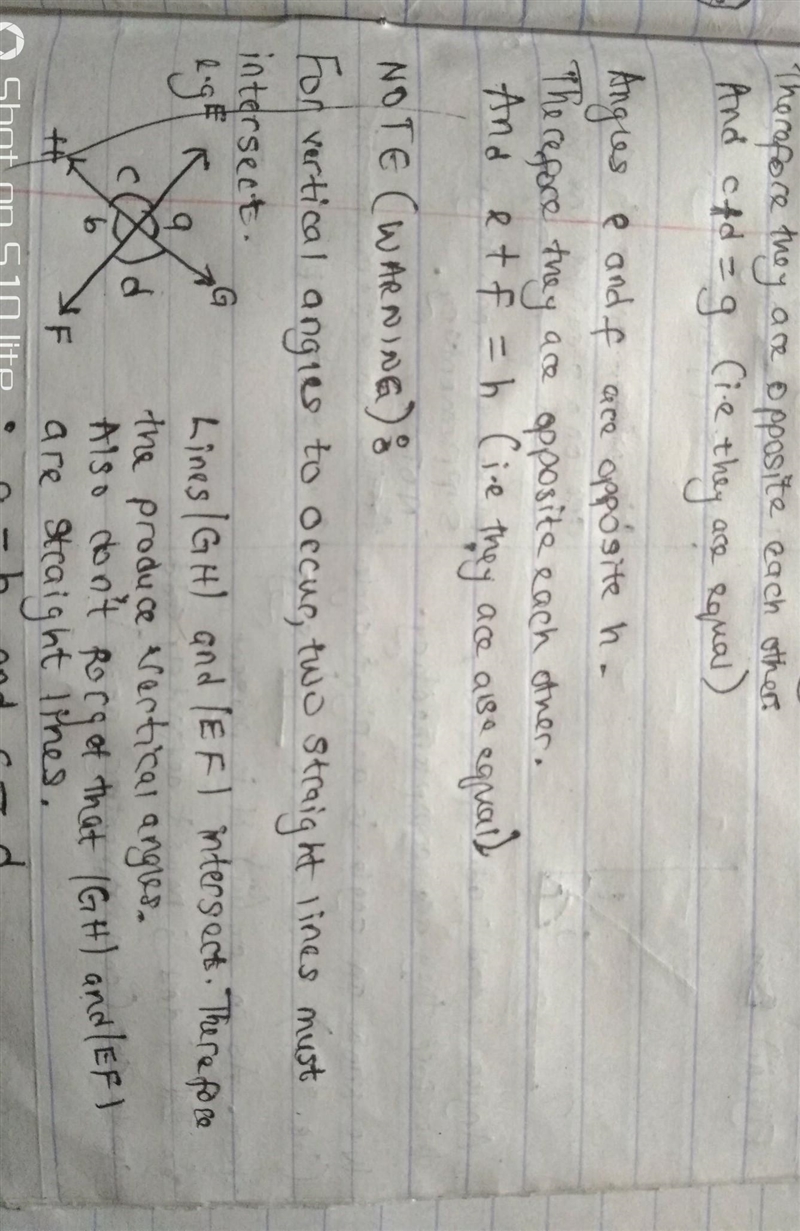 Therefore they are opposite each other.
And c+d = g (i.e they are equal)
Angles e and f are opposite h.
Therefore they are opposite each other.
And e + f = h (i.e they are also equal)
NOTE (WARNING):
For vertical angles to occur, two straight lines must
intersect.
e.g E
G
H
F
a
b
c
d
Lines |GH| and |EF| intersect. Therefore
the produce vertical angles.
Also don't forget that |GH| and |EF|
are straight lines.
a = b and c = d
Shot on S10 lite